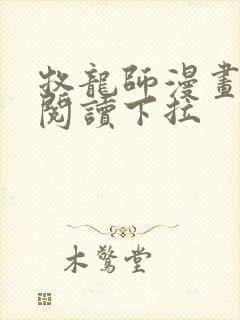 牧龍師漫畫
閱讀下拉
木驚堂